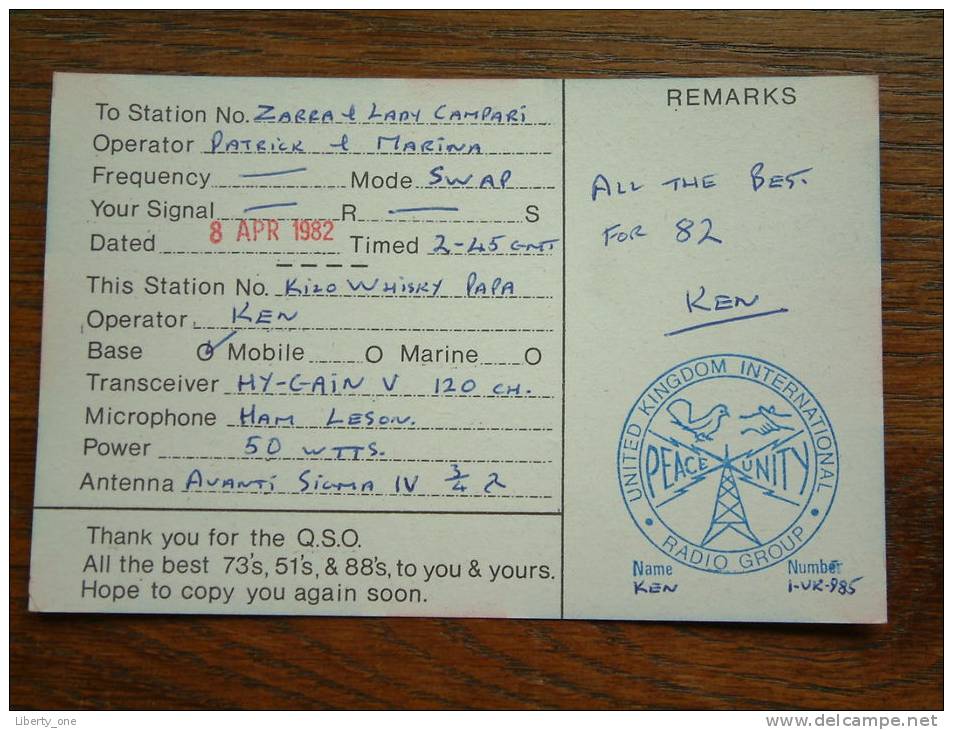 To Station No. ZARRA & LADY CAMPARI
Operator PATRICK & MARINA
Frequency — Mode SWAP
Your Signal — R — S
Dated 8 APR 1982 Timed 2-45 GMT
This Station No. KILO WHISKY PAPA
Operator KEN
Base O Mobile O Marine O
Transceiver HY-GAIN V 120 CH.
Microphone HAM LESON.
Power 50 WTTS.
Antenna AVANTI SIGMA IV 3/4 λ
Thank you for the Q.S.O.
All the best 73's, 51's, & 88's, to you & yours.
Hope to copy you again soon.
REMARKS
ALL THE BEST.
FOR 82
KEN
UNITED KINGDOM INTERNATIONAL
PEACE UNITY
• RADIO GROUP •
Name Number
KEN 1-UK-985
Liberty_one
www.delcampe.net